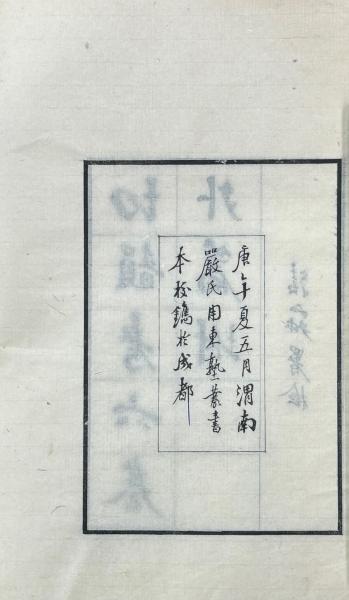 庚午夏五月渭南
嚴氏用東塾叢書
本校鐫於成都